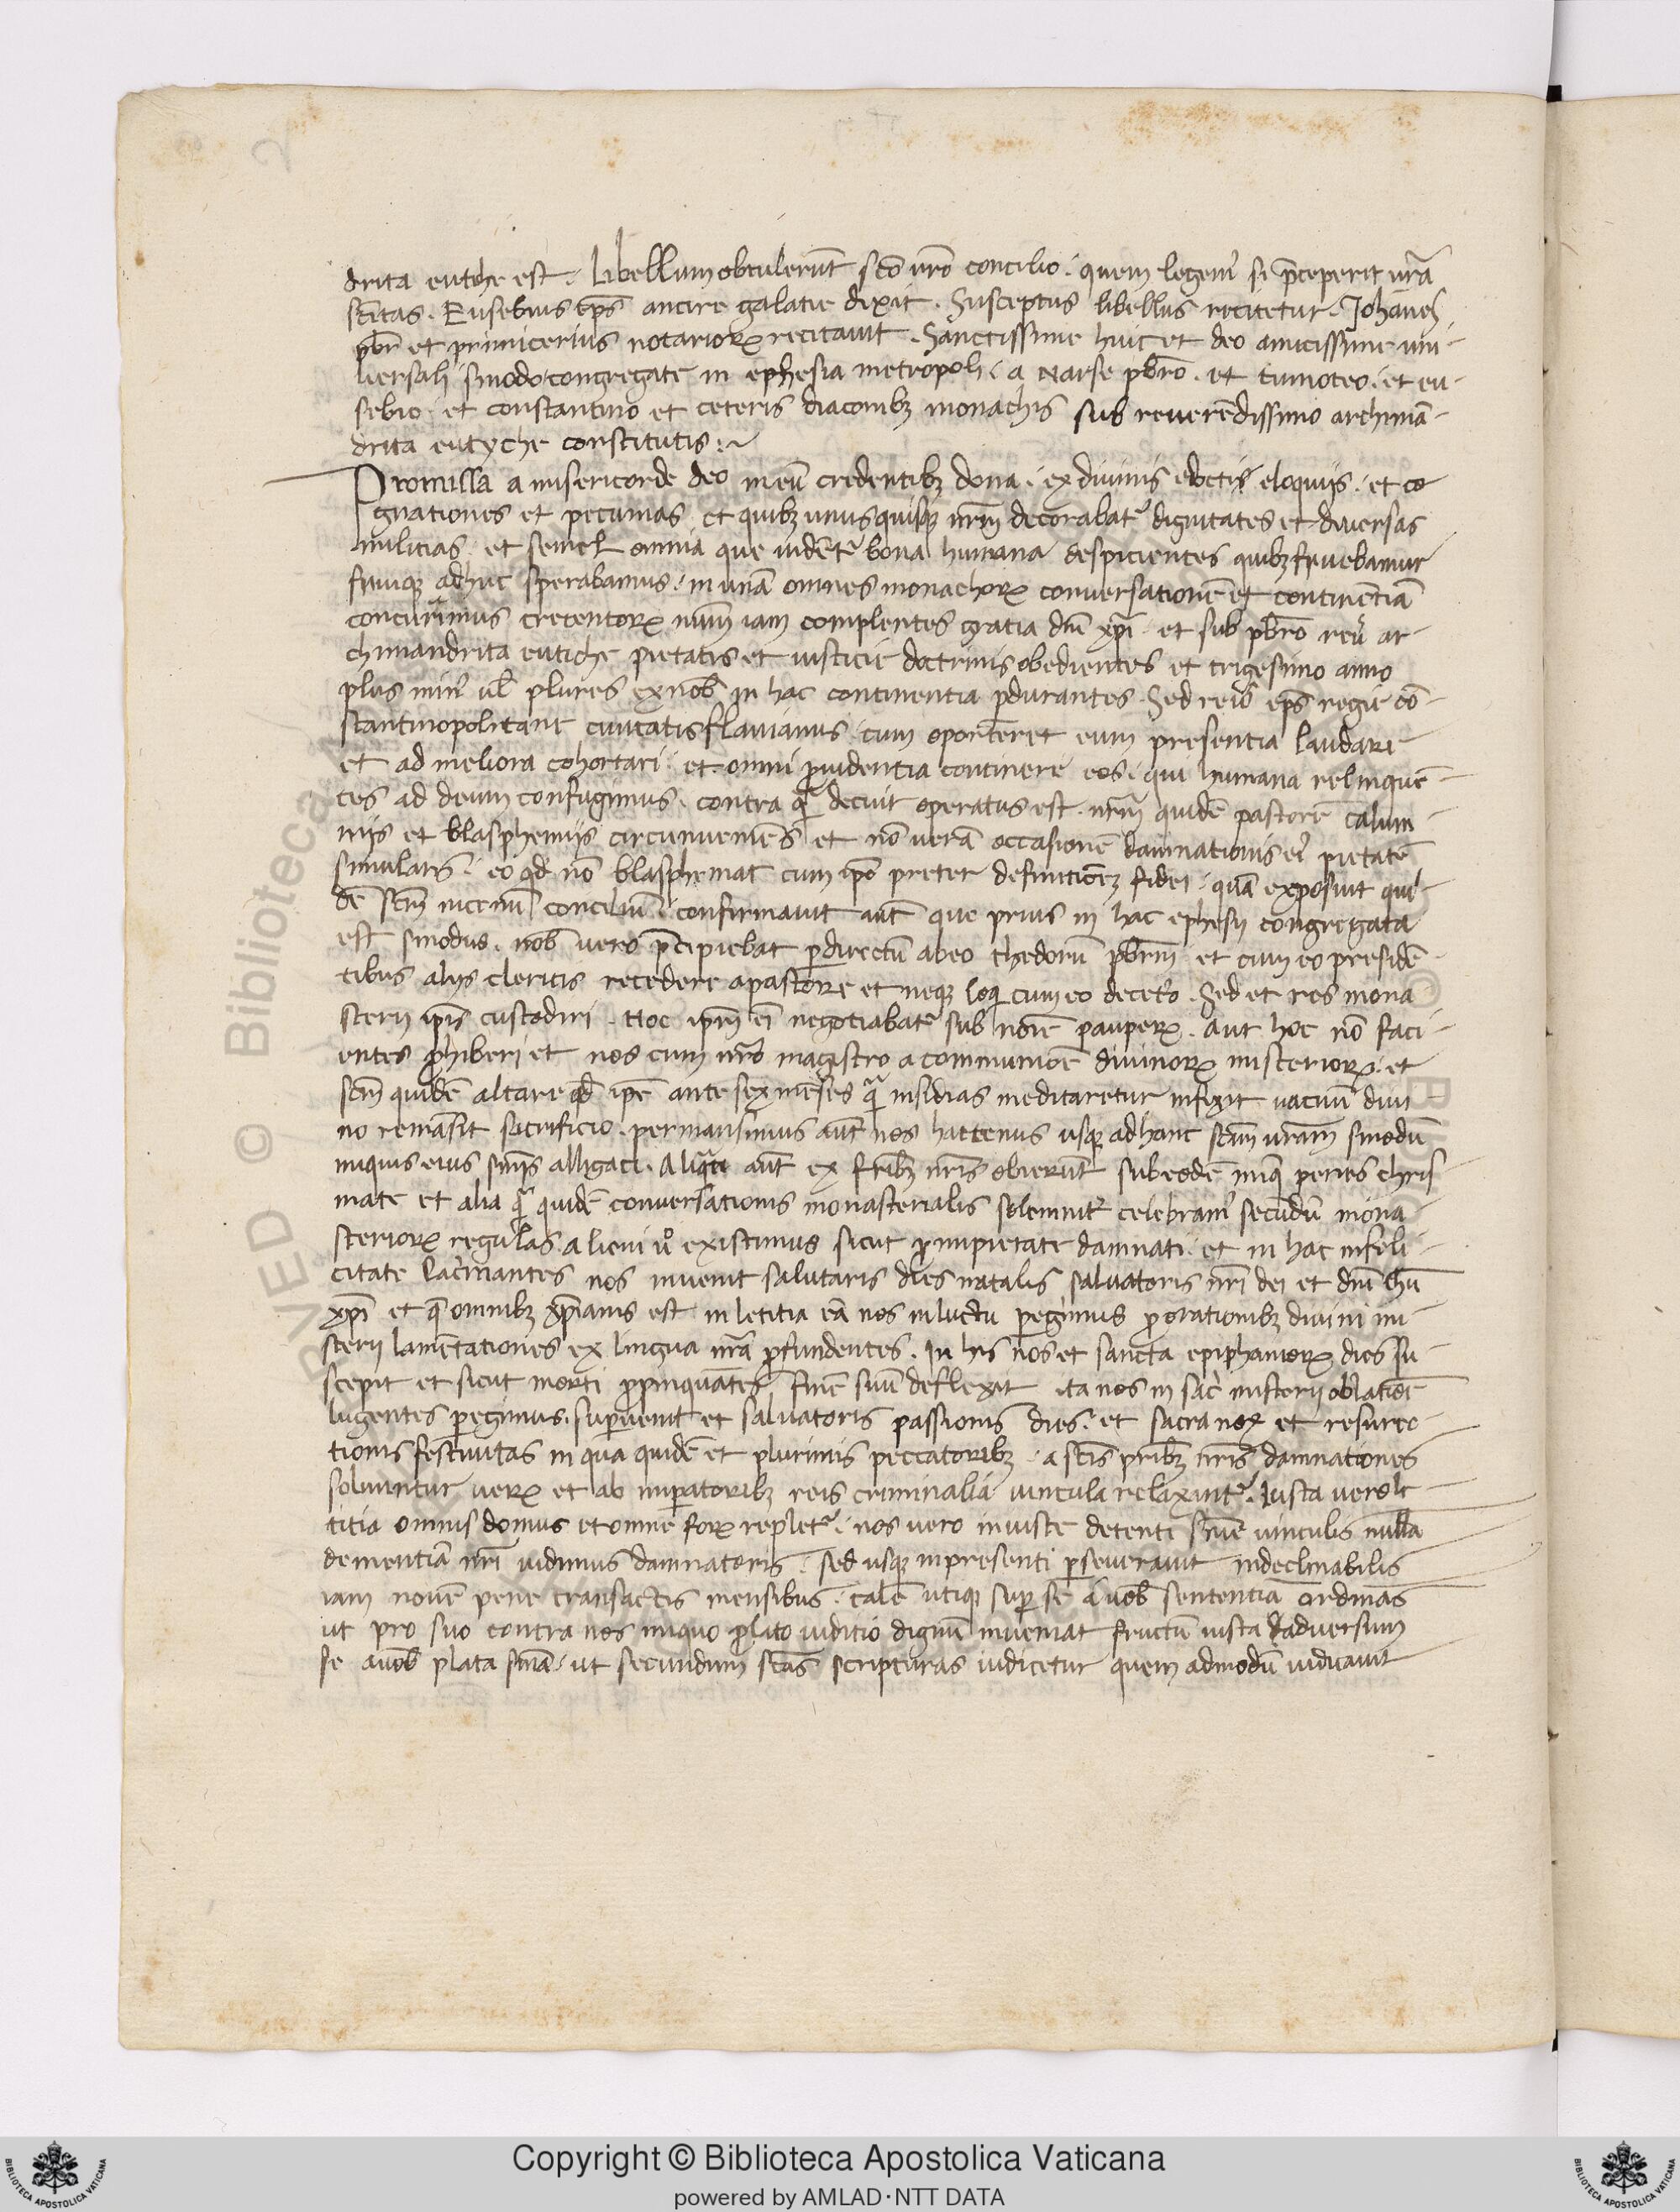 drita eutiche est. Libellum obtulerūt sc̄o vr̄o concilio. quem legem̉ si p̄ceperit vr̄a
sc̄itas. Eusebius ep̄s ancire galatie dixit. Susceptus libellus recitetur. Johānes
pbr̄ et primicerius notarioꝝ recitauit. Sanctissime huic et deo amicissime uni-
uersali sinodo congregate in ephesia metropoli. a Narse pbr̄o. et timoteo. et eu-
sebio. et constantino et ceteris diaconibꝫ monachis sub reuerēdissimo archimā-
drita eutyche constitutis:~
Promissa a misericorde deo in eū credentibꝫ dona. ex diuinis edocti eloquiis. et co
gnationes et pecunias et quibꝫ unusquisqꝫ nr̄m decorabat᷒ dignitates et diuersas
milicias. et semel omnia que uidēt᷒ bona humana despicientes quibꝫ fruebamur
fruiqꝫ adhuc sperabamus. in unā omnes monachoꝝ conuersationē et continētiā
concurrimus tretentoꝝ num̄ iam complentes gratia dn̄i xp̄i et sub pbr̄o reū ar-
chimandrita eutiche pietatis et iusticie doctrinis obedientes et trigesimo anno
plus min̉ ul̄ plures ex nob̄ in hac continentia ꝑdurantes. Sed reūs ep̄s regie cō-
stantinopolitane ciuitatis flauianus. cum oporteret eum presentia laudare
et ad meliora cohortari. et omni ꝓuidentia continere eos. qui humana relinquē-
tes ad deum confugimus. contra qͣ decuit operatus est. nr̄m quidē pastorē calum-
niis et blasphemiis circunueniēs et nō uerā occasionē damnationis eỉ pietatē
simulans. eo qd̄ nō blasphemat cum ip̄o preter definitionē fidei. quā exposuit qui-
dē sc̄m nicenū conciliū. confirmauit aūt que prius in hac ephesii congregata
est sinodus. nob̄ uero p̄cipiebat ꝑ directū ab eo thedorū pbr̄m et cum eo presidē-
tibus aliis clericis recedere a pastore et neqꝫ loqi cum eo decet̉o. Sed et res mona-
sterii ip̄is custodiri. Hoc ip̄m ei negotiabat᷒ sub noīe pauperꝝ. Aut hoc nō faci-
entes ꝓhiberi et nos cum nr̄o magistro a communiōe diuinoꝝ misterioꝝ. et
sc̄m quidē altare qd̄ ip̄e ante sex mēses qͣ insidias meditaretur infixit uacuū diui-
no remāsit sacrificio. permansimus aūt nos hactenus usqꝫ ad hanc sc̄am vr̄am sinodū
iniquis eius sniīs alligati. Aliqͣti aūt ex fr̄ibꝫ nr̄is obierūt sub eodē iniq̄ perites chris-
mate et alia qͣ quidē conuersationis monasterialis solemnit᷒ celebram̉ secūdū mona-
sterioꝝ regulas. alieni ūo existimus sicut ꝓ impietate damnati. et in hac infeli-
citate lac̉mantes nos inuenit salutaris dies natalis saluatoris nr̄i dei et dn̄i ihū
xp̄i et q̄ omnibꝫ xp̄ianis est in letitia eā nos in luctu ꝑegimus ꝓ orationibꝫ diuini mi-
sterii lamētationes ex lingua nr̄a ꝓfundentes. In his nos et sancta epiphanioꝝ dies su-
scepit et sicut morti ꝓpinquātes finē suū deflexit. ita nos in sac̉ misterii oblatiōe
lugentes ꝑegimus. supuenit et saluatoris passionis dies. et sacra nox et resurec-
tionis festiuitas in qua quidē et plurimis peccatoribꝫ. a sc̄is pr̄ibꝫ nr̄is damnationes
soluuntur ueꝝ et ab impatoribꝫ reis criminalia uincula relaxant᷒. Iusta uero le-
titia omnis domus et omne foꝝ replet᷒. nos vero iniuste detenti sīne uinculis nulla
dementiā nr̄i uidimus damnatoris. sed usqꝫ inpresenti ꝑseuerauit indeclinabilis
iam nouē pene transactis mensibus. talē utiqꝫ super se a uob̄ sententiā ordinās
ut pro suo contra nos iniquo ꝓlato iuditio dignū inueniat fructū iusta aduersum
se a uob̄ ꝓlata snīa. ut secundum sc̄as scripturas iudicetur quem admodū iudicauit
Copyright © Biblioteca Apostolica Vaticana
powered by AMLAD·NTT DATA